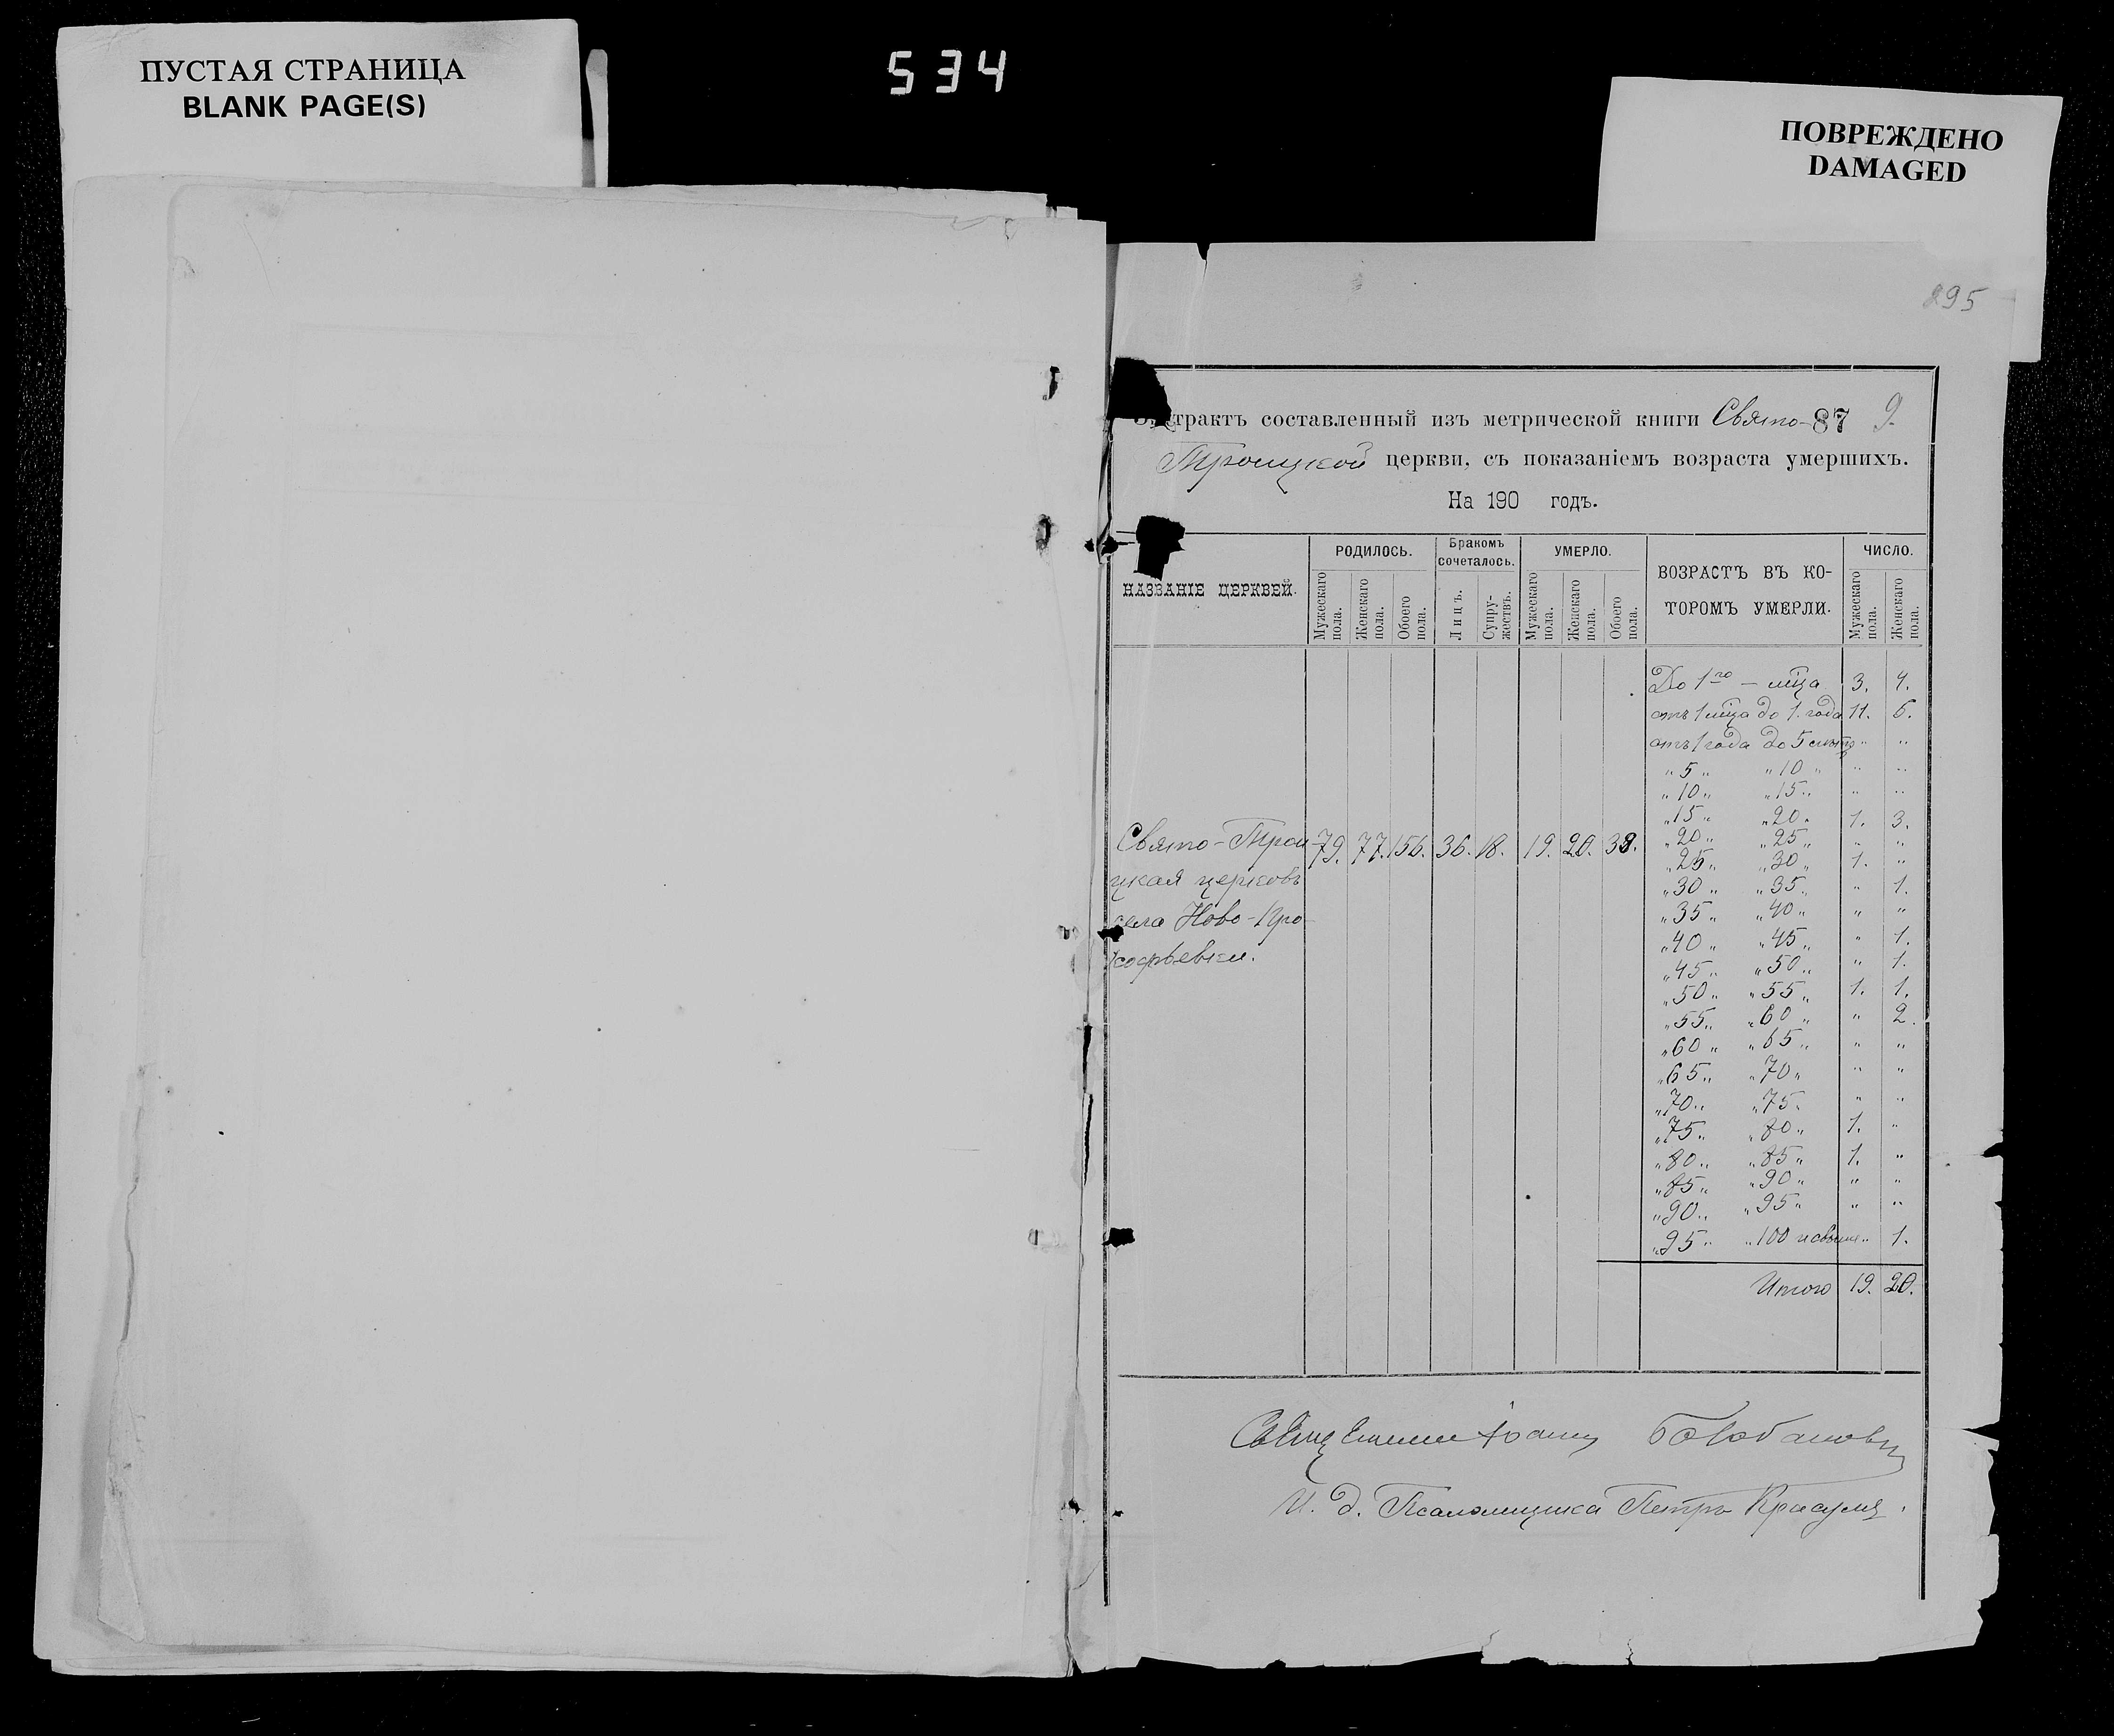 ПУСТАЯ СТРАНИЦА
BLANK PAGE(S)
534
ПОВРЕЖДЕНО
DAMAGED
295
трактъ составленный изъ метрической книги Свято-87 9.
Троицкой церкви, съ показаніемъ возраста умершихъ.
На 190 годъ.
НАЗВАНІЕ ЦЕРКВЕЙ.
РОДИЛОСЬ.
Мужескаго пола.
Женскаго пола.
Обоего пола.
Бракомъ сочеталось.
Лицъ.
Супружествъ.
УМЕРЛО.
Мужескаго пола.
Женскаго пола.
Обоего пола.
ВОЗРАСТЪ ВЪ КО-
ТОРОМЪ УМЕРЛИ.
ЧИСЛО.
Мужескаго пола.
Женскаго пола.
До 1го – мца 3. 4.
отъ 1 мца до 1. года 11. 6.
отъ 1 года до 5 лѣтъ " "
" 5 " " 10 " " "
" 10 " " 15 " " "
" 15 " " 20 " 1. 3.
" 20 " " 25 " " "
" 25 " " 30 " 1. "
" 30 " " 35 " " 1.
" 35 " " 40 " " "
" 40 " " 45 " " 1.
" 45 " " 50 " " 1.
" 50 " " 55 " 1. 1.
" 55 " " 60 " " 2.
" 60 " " 65 " " "
" 65 " " 70 " " "
" 70 " " 75 " " "
" 75 " " 80 " 1. "
" 80 " " 85 " 1. "
" 85 " " 90 " " "
" 90 " " 95 " " "
" 95 " " 100 и свыше " 1.
Итого 19. 20.
Свято-Трои- 79. 77. 156. 36. 18. 19. 20. 39.
цкая церковь
села Ново-Про
кофьевки.
Священникъ Іоаннъ
И. д. Псаломщика Петръ